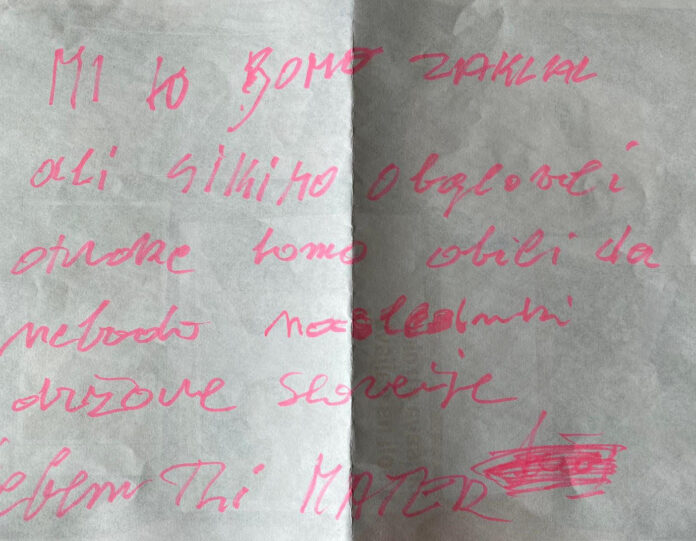 MI to BOMO ZAKLAL
ali sikiro obglovili
otroke bomo obili da
nebodo nasledniki
države Slovenije
ebem Thi MATER